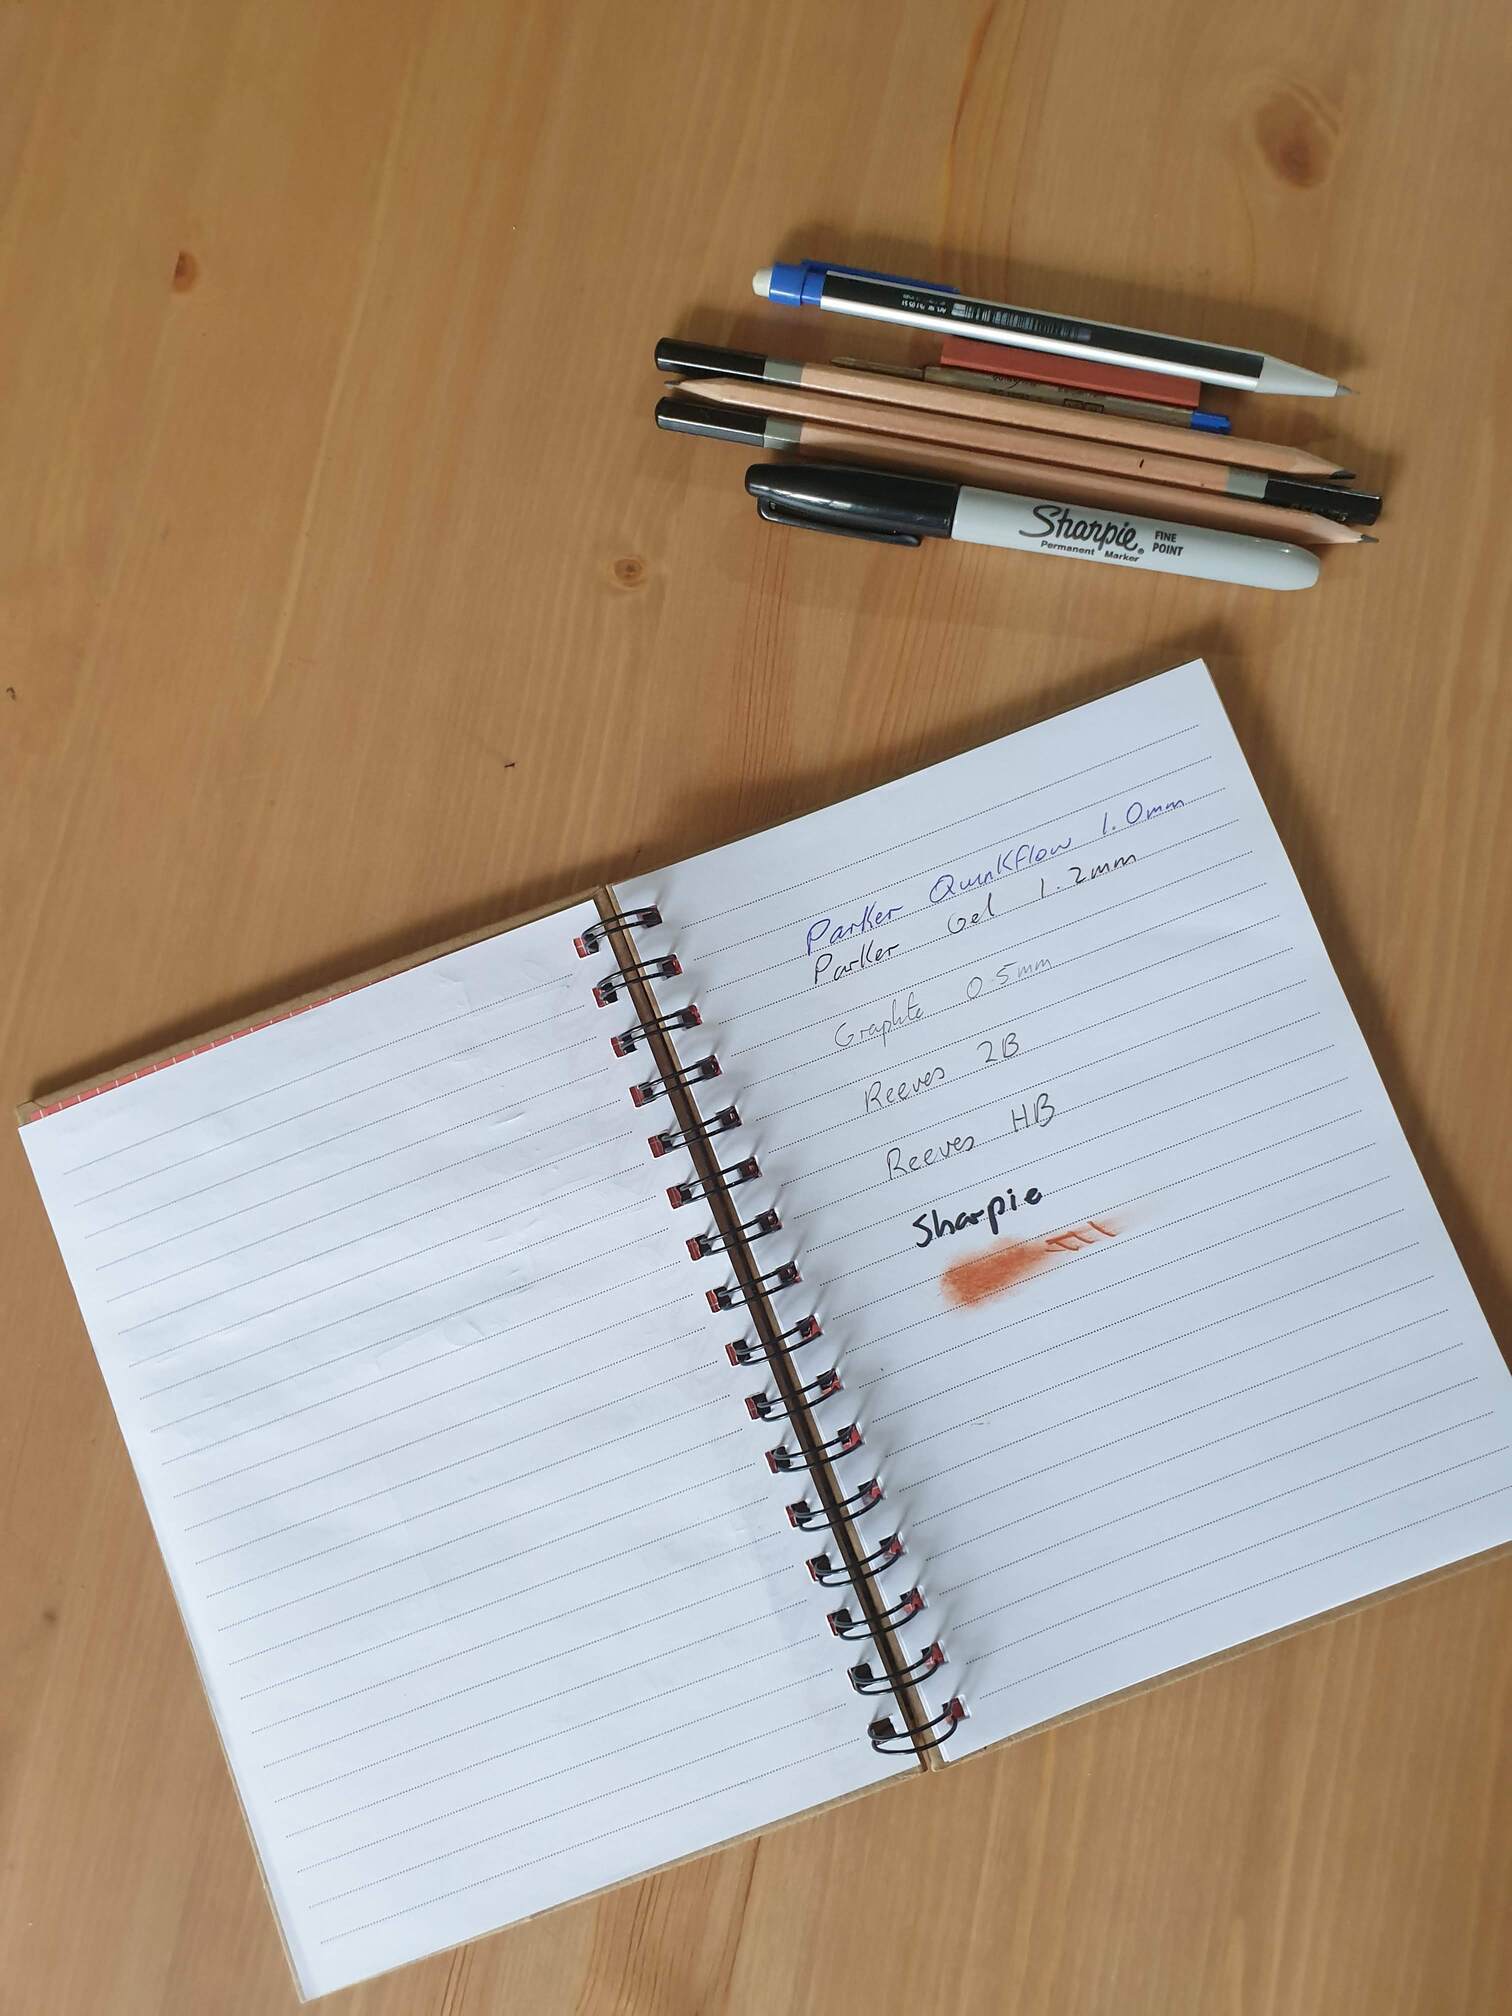 Sharpie® FINE POINT
Permanent Marker
Parker Quinkflow 1.0mm
Parker Gel 1.2mm
Graphite 0.5mm
Reeves 2B
Reeves HB
Sharpie